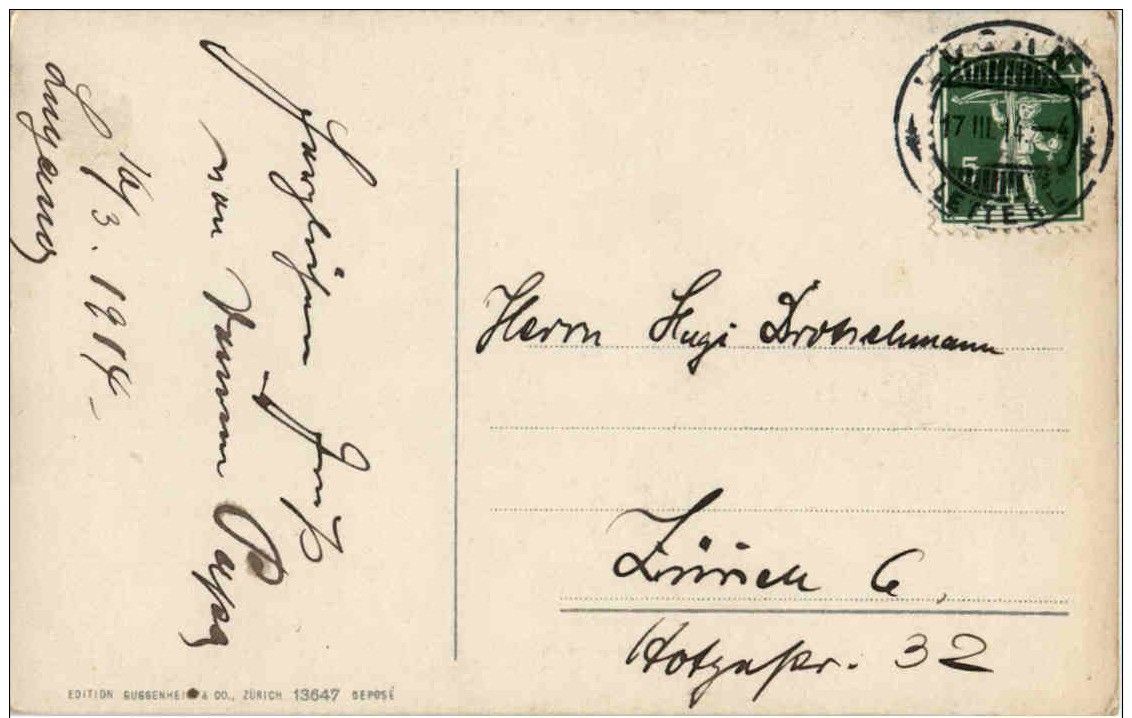 Lugano
16/3. 1914.
Herzlichen Gruß
von Deinem Papa
LUGANO
17 III 14 –4
5
Herrn Hugi Drotschmann
Zürich 6,
Hotzestr. 32
EDITION GUGGENHEIM & CO., ZÜRICH 13647 DEPOSÉ